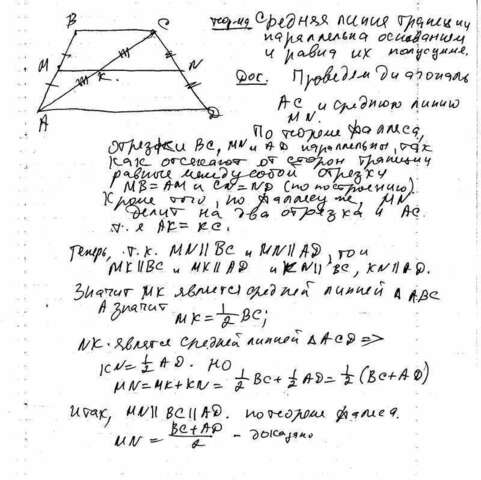 B C
M K. N
A D
теорема Средняя линия трапеции
параллельна основаниям
и равна их полусумме.
Док. Проведем диагональ
AC и среднюю линию
MN.
По теореме фалеса,
отрезки BC, MN и AD параллельны, так
как отсекают от сторон трапеции
равные между собой отрезки
MB=AM и CN=ND (по построению).
Кроме того, по фалесу же, MN
делит на два отрезка и AC.
т.е AK=KC.
Теперь, т.к. MN||BC и MN||AD, то и
MK||BC и MK||AD и KN||BC, KN||AD.
Значит MK является средней линией Δ ABC
А значит MK=1/2 BC;
NK-является средней линией Δ ACD =>
KN=1/2 AD. но
MN=MK+KN=1/2 BC+1/2 AD=1/2 (BC+AD)
итак, MN||BC||AD. по теореме фалеса.
MN = BC+AD/2 - доказано